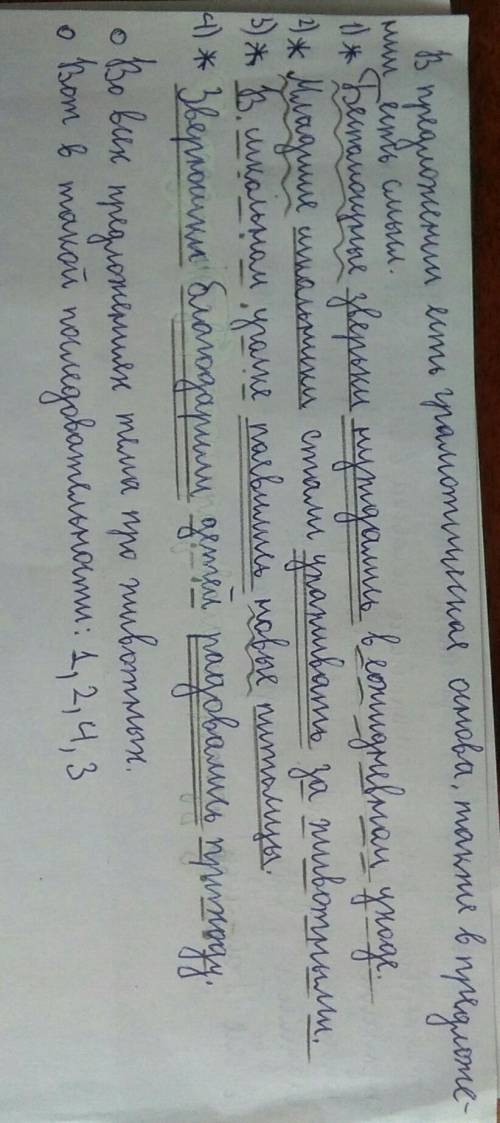 В предложении есть грамотическая основа, также в предложе-
нии есть смысл.
1) * Беспомощные зверьки нуждались в ежедневном уходе.
2) * Младшие школьники стали ухаживать за животными.
3) * В школьном уголке появились новые питомцы.
4) * Зверюшки благодарили детей радовались приходу.
о Во всех предложениях тема про животных.
о Вот в такой последовательности: 1, 2, 4, 3